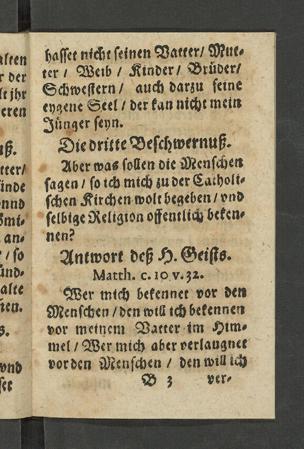 hasset nicht seinen Vatter/ Mut-
ter / Weib / Kinder/ Brüder/
Schwestern / auch darzu seine
eygene Seel / der kan nicht mein
Jünger seyn.
Die dritte Beschwernuß.
Aber was sollen die Menschen
sagen / so ich mich zu der Catholi-
schen Kirchen wolt begeben / vnd
selbige Religion offentlich beken-
nen?
Antwort deß H. Geists.
Matth. c. 10 v. 32.
Wer mich bekennet vor den
Menschen / den will ich bekennen
vor meinem Vatter im Him-
mel / Wer mich aber verlaugnet
vor den Menschen / den will ich
B 3 ver-